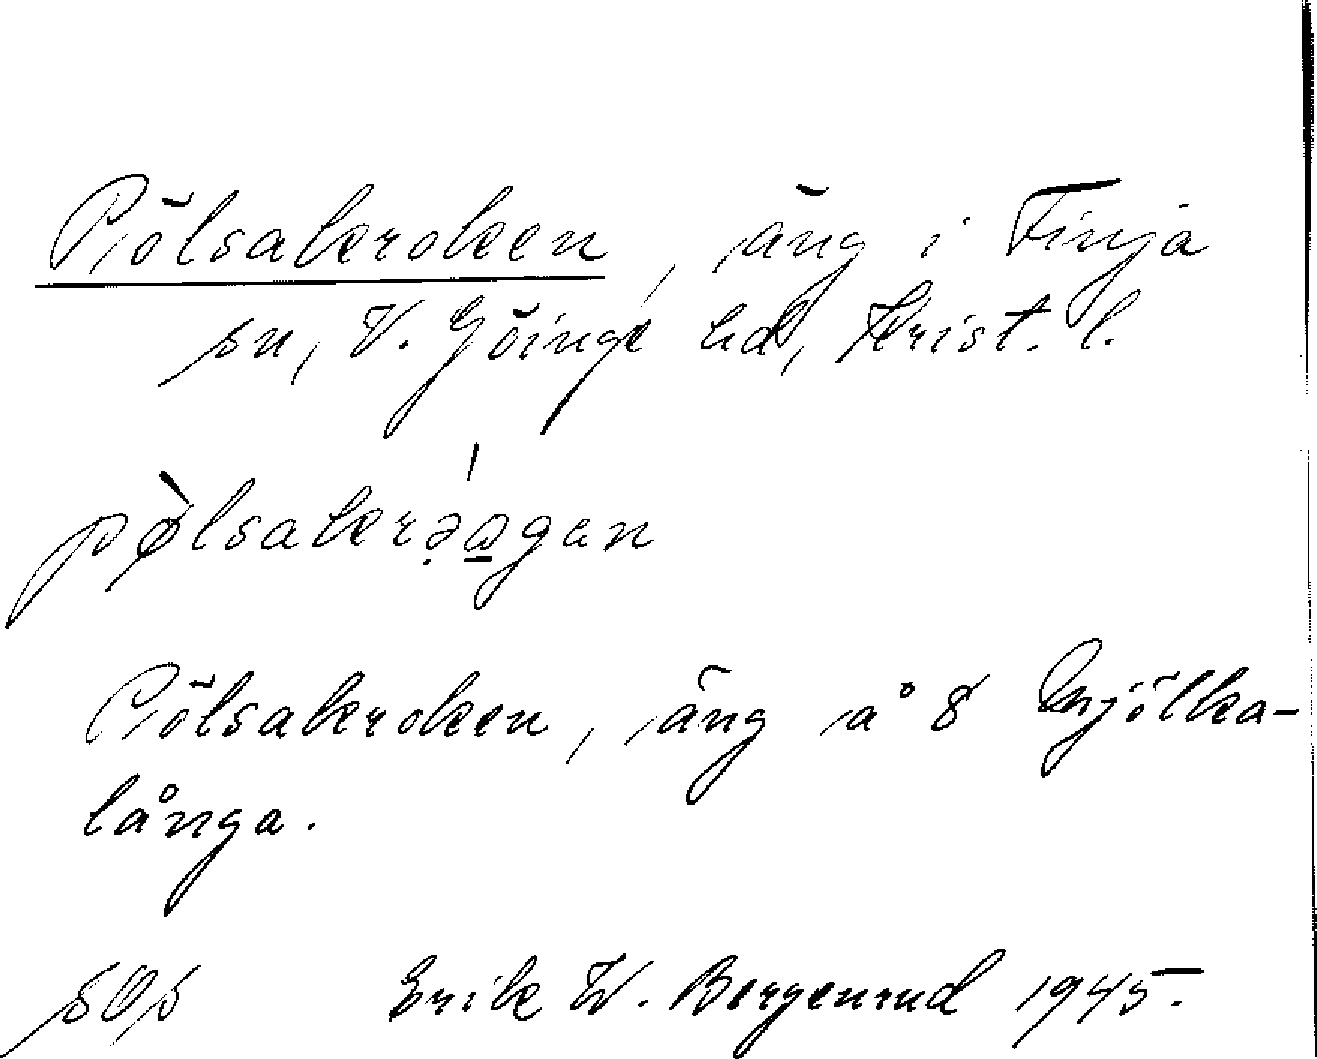 Pölsakroken, äng i Finja
sn, V. Göinge hd, Krist. l.
pø̀lsakrəa̱gen
Pölsakroken, äng å 8 Mjölka-
långa.
sOs Erik W. Bergenrud 1945.